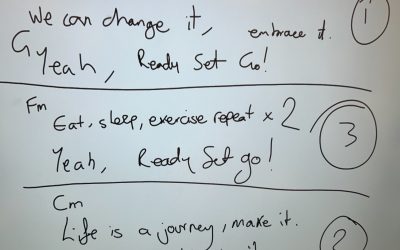 We can change it, embrace it. 1
G Yeah, Ready Set Go!
Fm
Eat, sleep, exercise repeat x 2 3
Yeah, Ready Set go!
Cm
Life is a journey, make it. 2